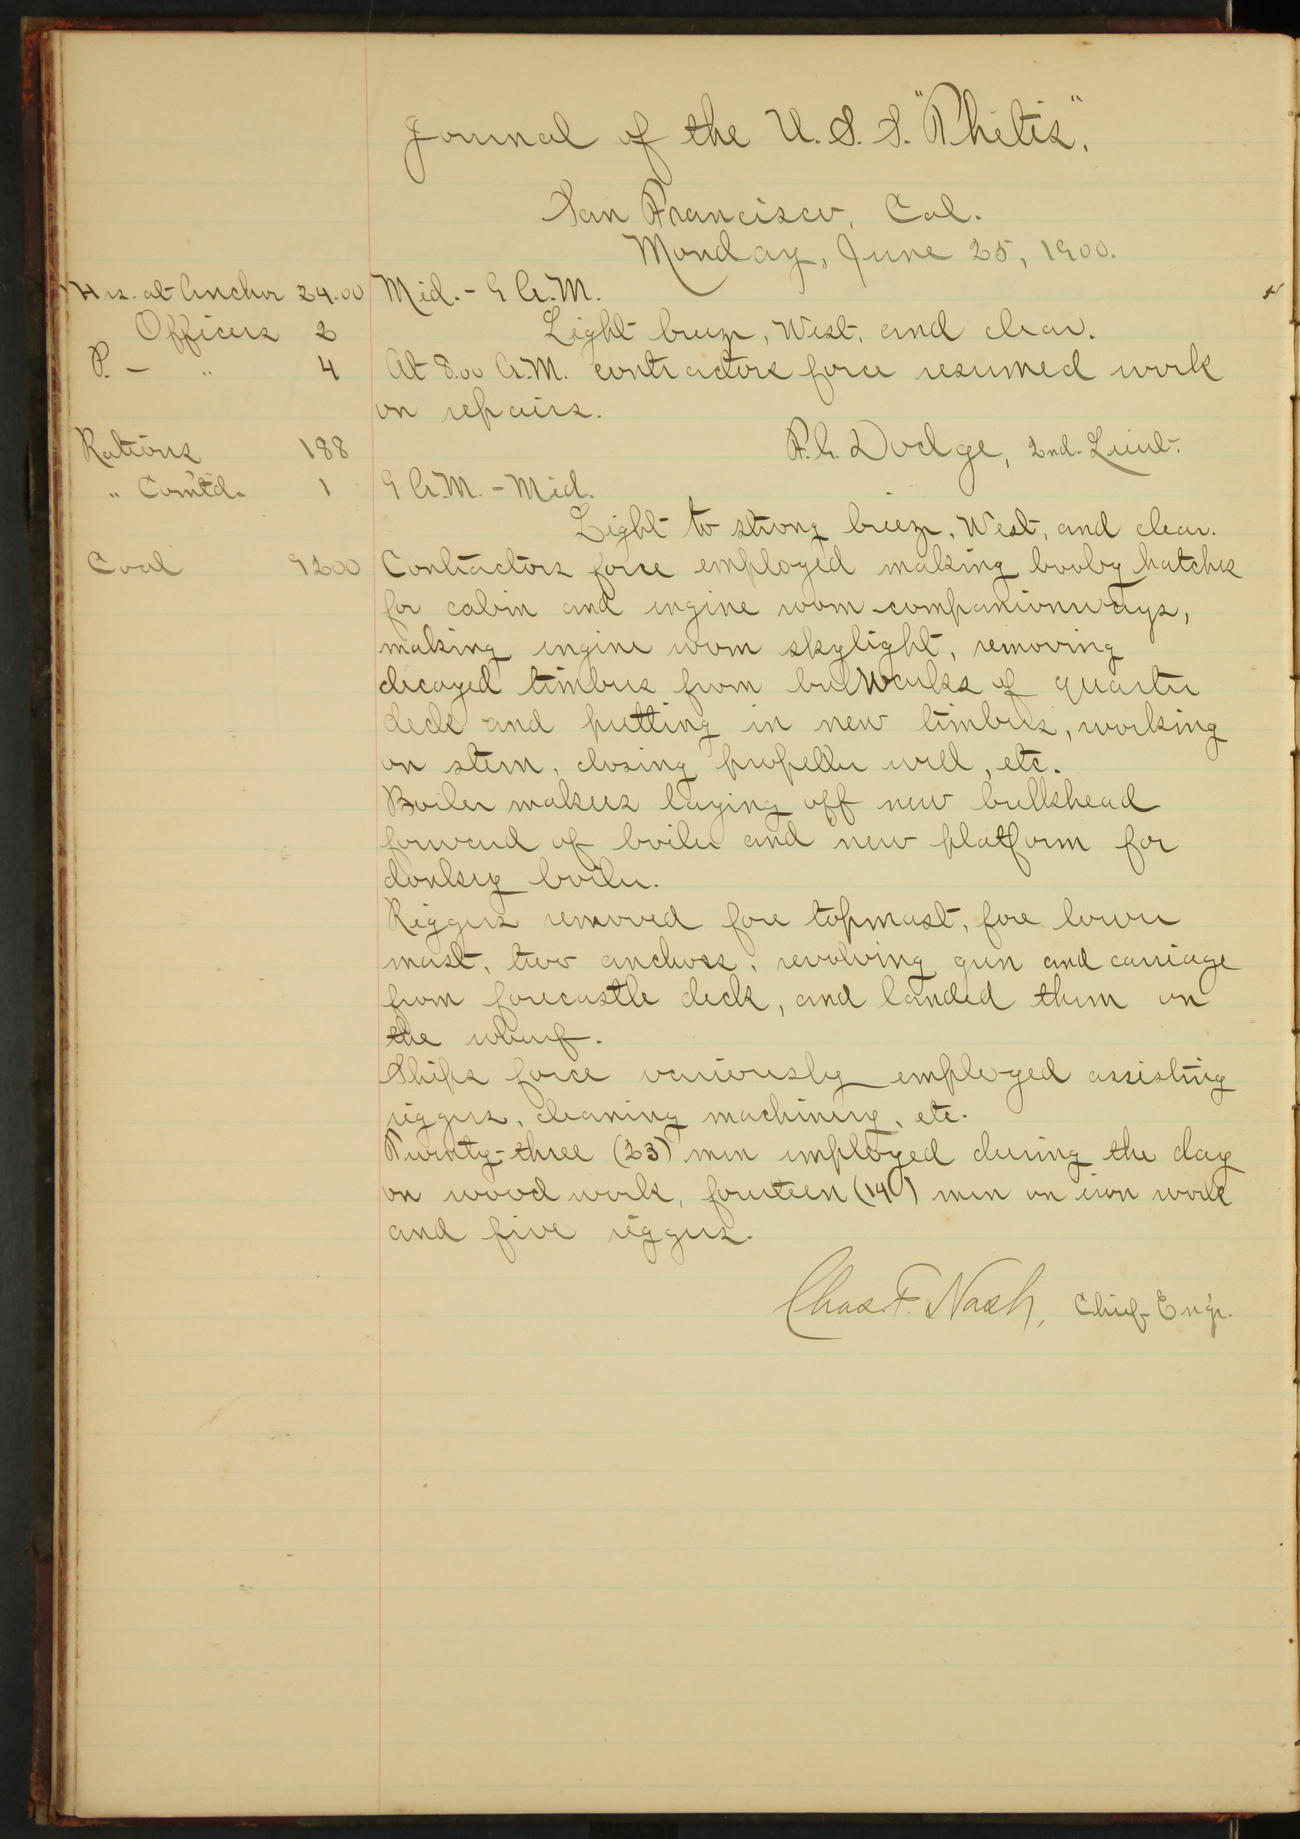 Journal of the U. S. S. "Thetis".
San Francisco, Cal.
Monday, June 25, 1900.
Hrs. at Anchor 24.00
Mid. - 9 A.M.
Officers 2
Light breeze, West, and clear.
P. - " 4
At 8.00 A.M. contractors force resumed work
on repairs.
Rations 188
F. G. Dodge, 2nd. Lieut.
" Com'td. 1
9 A.M. - Mid.
Light to strong breeze, West, and clear.
Coal 9200
Contractors force employed making booby hatches
for cabin and engine room companionways,
making engine room skylight, removing
decayed timbers from bulwarks of quarter
deck and putting in new timbers, working
on stem, closing propeller well, etc.
Boiler makers laying off new bulkhead
forward of boiler and new platform for
donkey boiler.
Riggers removed fore topmast, fore lower
mast, two anchors, revolving gun and carriage
from forecastle deck, and landed them on
the wharf.
Ships force variously employed assisting
riggers, cleaning machinery, etc.
Twenty-three (23) men employed during the day
on wood work, fourteen (14) men on iron work
and five riggers.
Chas. F. Nash, Chief Eng'r.